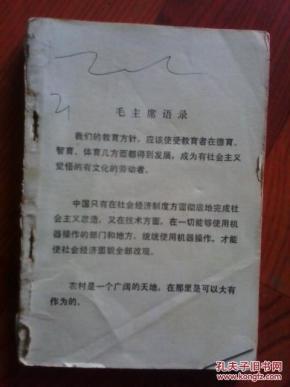 毛主席语录
我们的教育方针，应该使受教育者在德育、
智育、体育几方面都得到发展，成为有社会主义
觉悟的有文化的劳动者。
中国只有在社会经济制度方面彻底地完成社
会主义改造，又在技术方面，在一切能够使用机
器操作的部门和地方，统统使用机器操作，才能
使社会经济面貌全部改观。
农村是一个广阔的天地，在那里是可以大有
作为的。